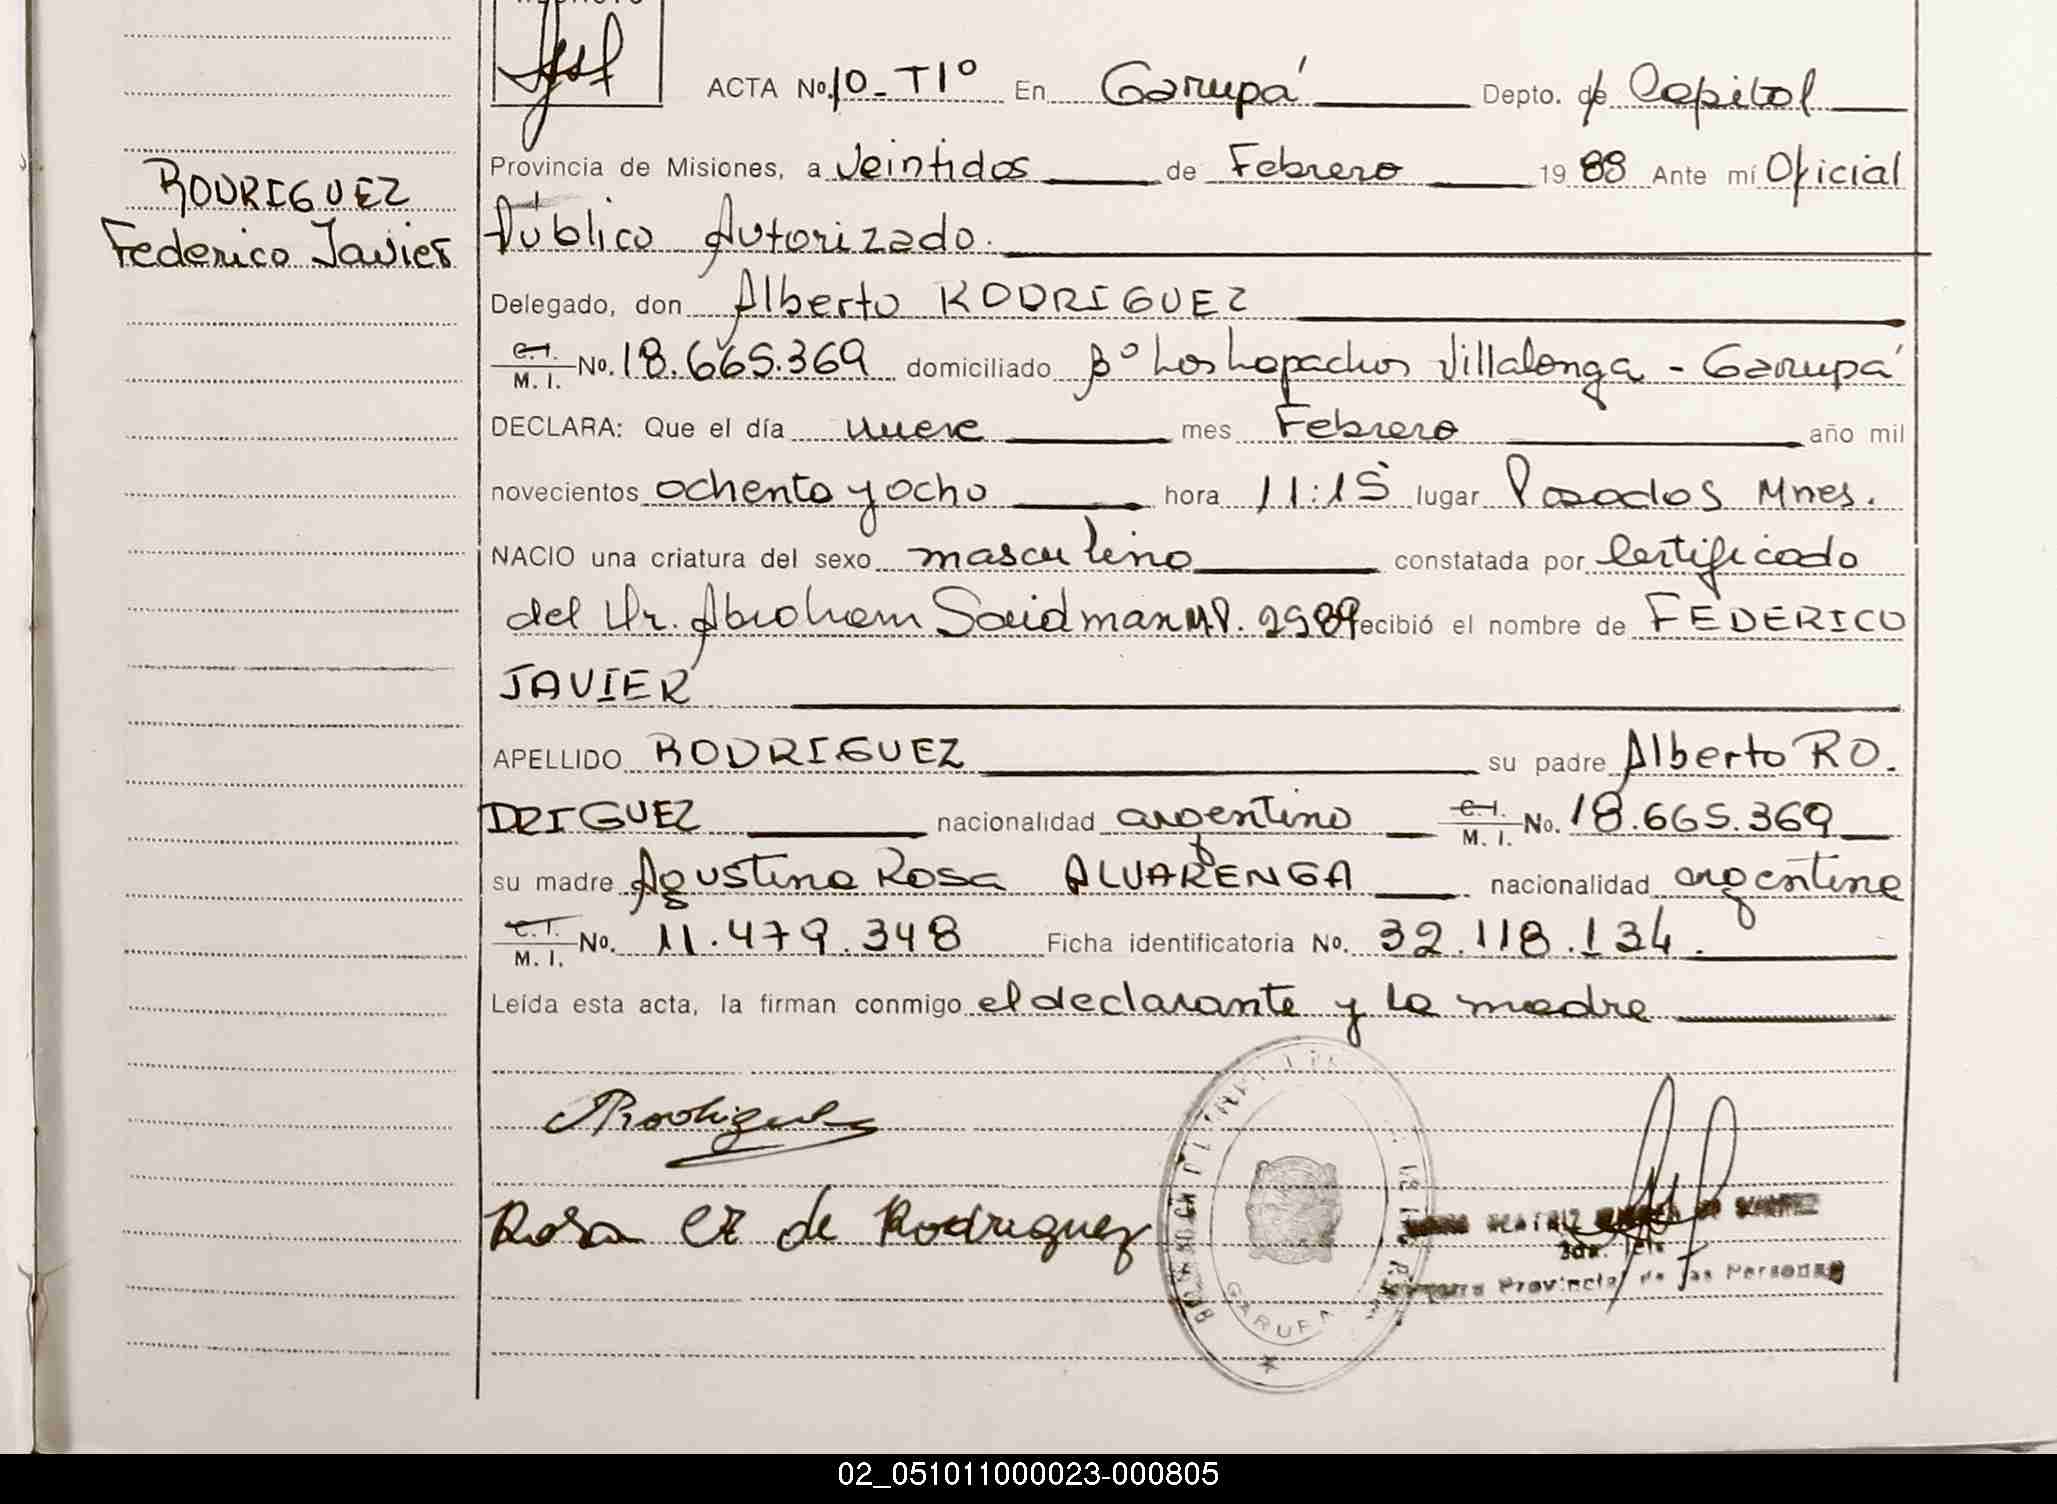 ACTA No. 10_TIº En Garupá Depto. de Capital
RODRIGUEZ
Federico Javier
Provincia de Misiones, a veintidos de Febrero 19 88 Ante mí Oficial
Público Autorizado.
Delegado, don Alberto RODRIGUEZ
C.I. M. I. No. 18.665.369 domiciliado Bº Los Lapachos Villalonga - Garupá
DECLARA: Que el día nueve mes Febrero año mil
novecientos ochenta y ocho hora 11:15 lugar Posadas Mnes.
NACIO una criatura del sexo masculino constatada por Certificado
del Dr. Abraham M.P. recibió el nombre de FEDERICO
JAVIER
APELLIDO RODRIGUEZ su padre Alberto RO.
DRIGUEZ nacionalidad argentino C.I. M. I. No. 18.665.369
su madre Agustina Rosa ALVARENGA nacionalidad argentina
C.I. M. I. No. 11.479.348 Ficha identificatoria No. 32.118.134.
Leída esta acta, la firman conmigo el declarante y la madre
ARodriguez
Rosa A de Rodriguez
BEATRIZ
Provincial de las Personas
GARUPA
02_051011000023-000805